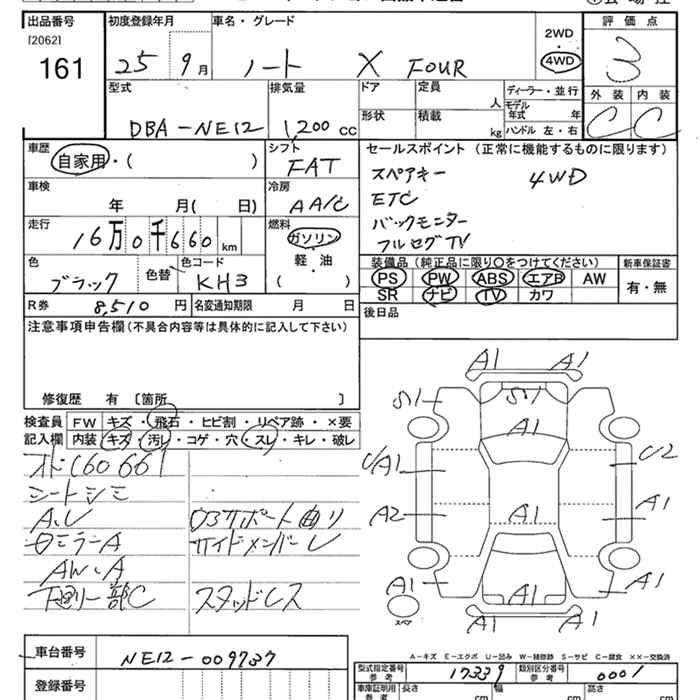 出品番号 初度登録年月 車名・グレード 2WD 評価点
[2062] 4WD 3
161 25 9月 ノート X FOUR 外装 内装
型式 排気量 ドア 定員 人 ディーラー・並行 C C
形状 積載 kg モデル年式 年
DBA-NE12 1,200 cc ハンドル 左・右
車歴 シフト セールスポイント (正常に機能するものに限ります)
自家用・( ) FAT スペアキー 4WD
車検 冷房 ETC
年 月( 日) AA/C バックモニター
走行 燃料 フルセグTV
16万0千660km ガソリン
軽・油
( )
色 色替 色コード 装備品(純正品に限り〇をつけてください) 新車保証書
ブラック KH3 PS PW ABS エアB AW 有・無
SR ナビ TV カワ
R券 8,510円 名変通知期限 月 日 後日品
注意事項申告欄(不具合内容等は具体的に記入して下さい)
修復歴 有 〔箇所 〕
検査員 FW キズ・飛石・ヒビ割・リペア跡・×要
記入欄 内装 キズ・汚レ・コゲ・穴・スレ・キレ・破レ
シートシミ
A.U 03サポート曲り
ミラーA サイドメンバーU
AW.A
下廻り一部C スタッドレス
A1 A1
A1
A1
U2
A1
A2 A1 A1
A1 A1 A1
スペア A1 A1
A-キズ E-エクボ U-凹み W-補修跡 S-サビ C-腐食 ××-交換済
車台番号 NE12-009737 型式指定番号 参考 17339 類別区分番号 参考 0001
登録番号 車庫証明用 参考 長さ cm 幅 cm 高さ cm